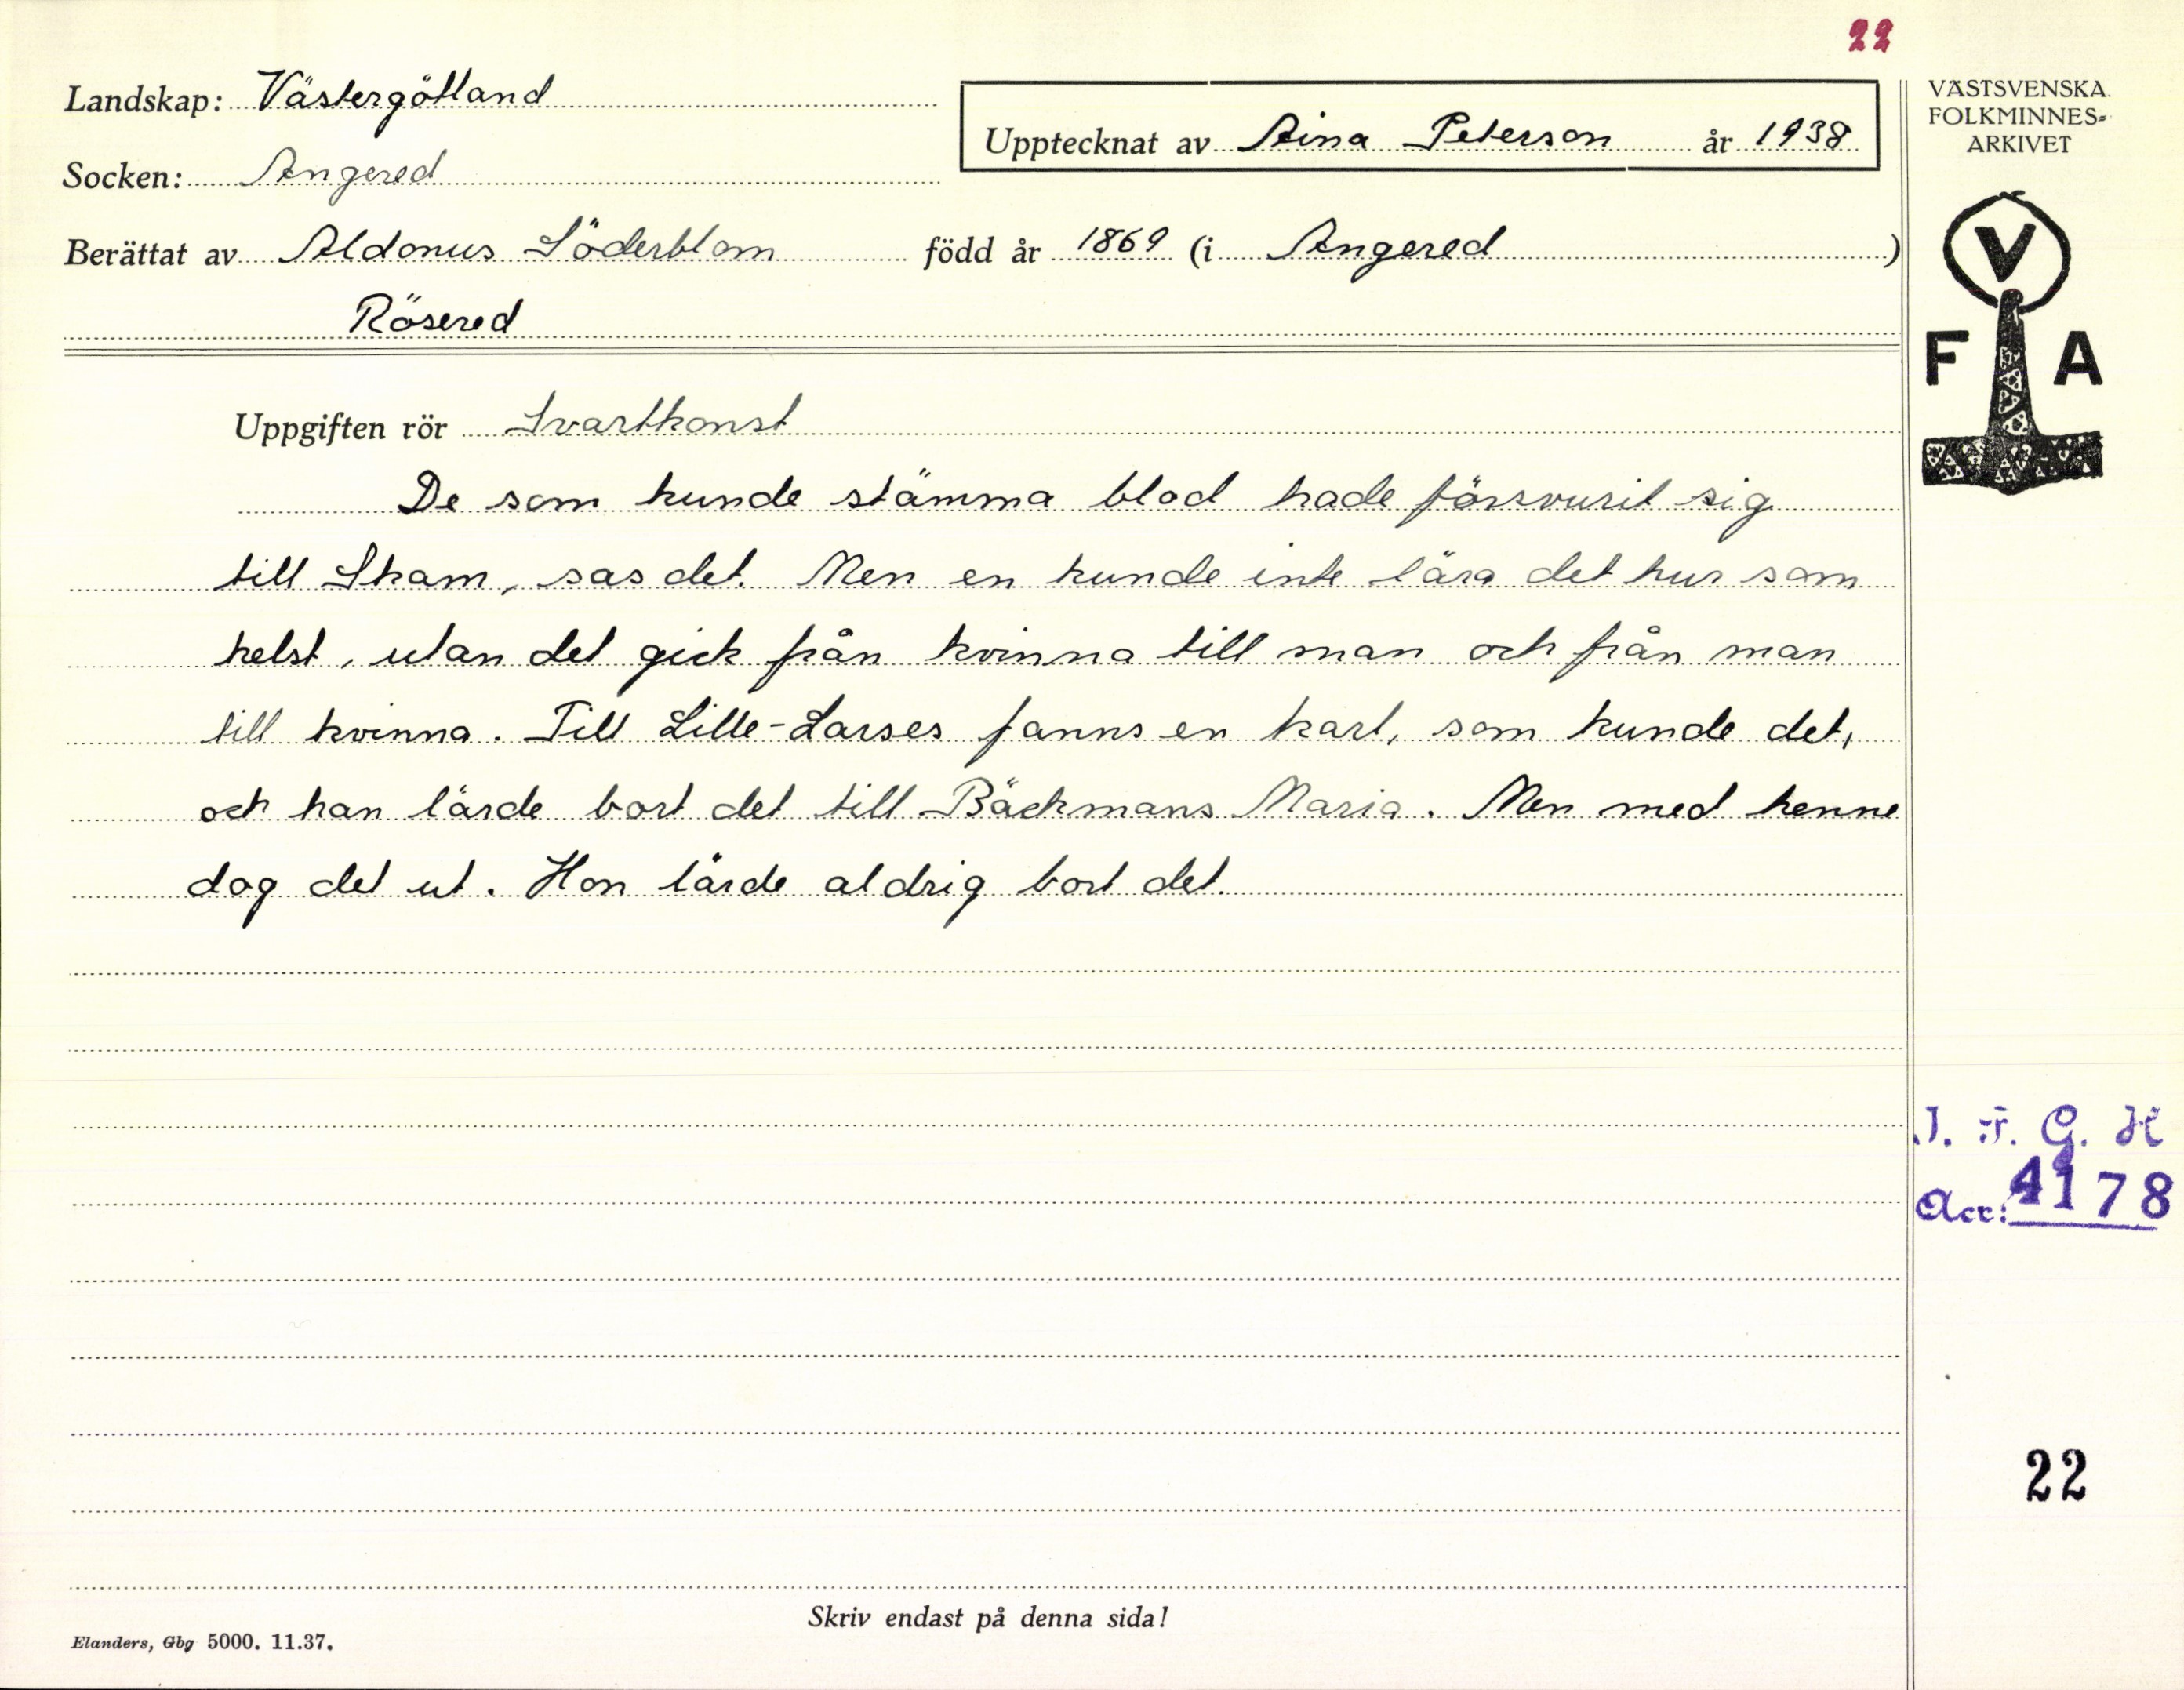 22
Landskap: Västergötland
Upptecknat av Aina Peterson år 1938
Socken: Angered
Berättat av Aldonus Söderblom född år 1869 (i Angered)
Rösered
VÄSTSVENSKA
FOLKMINNES-
ARKIVET
V
F A
Uppgiften rör Svartkonst
De som kunde stämma blod hade försvurit sig
till Skam, sas det. Men en kunde inte lära det hur som
helst, utan det gick från kvinna till man och från man
till kvinna. Till Lille-Larses fanns en karl, som kunde det,
och han lärde bort det till Bäckmans Maria. Men med henne
dog det ut. Hon lärde aldrig bort det.
I. F. G. H
Acc: 4178
22
Skriv endast på denna sida!
Elanders, Gbg 5000. 11.37.